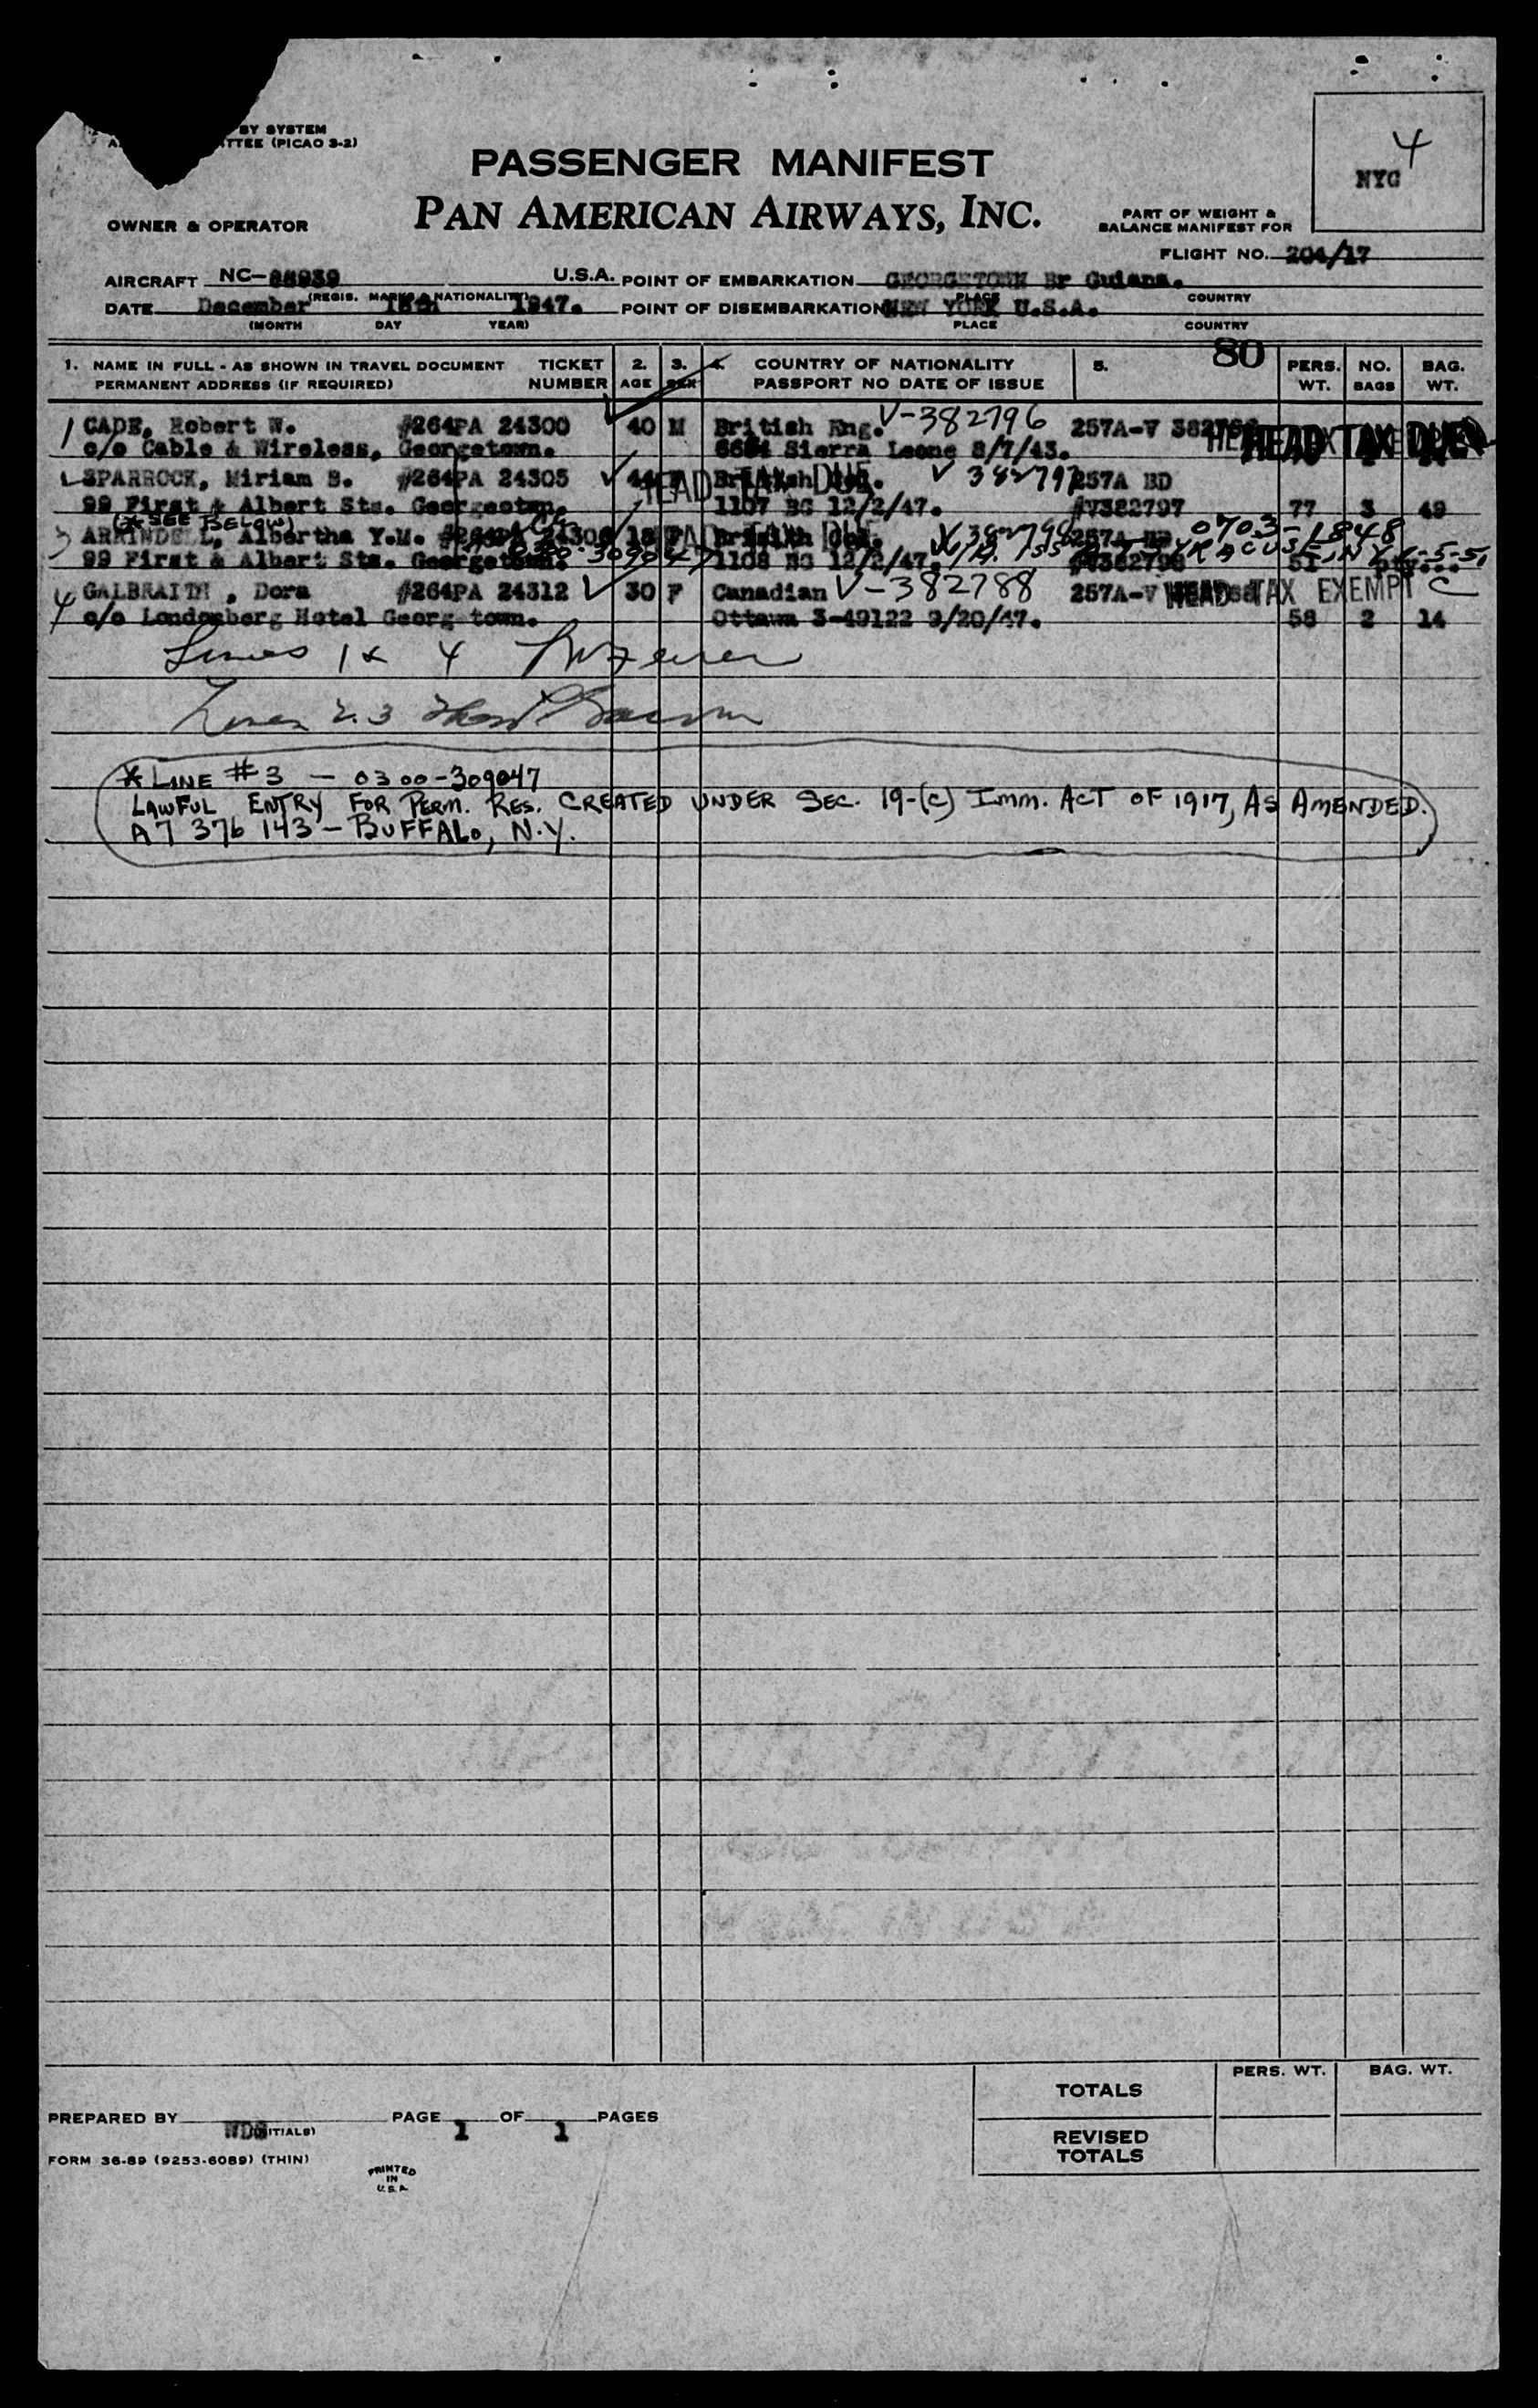 BY SYSTEM
(PICAO 3-2)
4
NYC
PASSENGER MANIFEST
PAN AMERICAN AIRWAYS, INC.
OWNER & OPERATOR
PART OF WEIGHT & BALANCE MANIFEST FOR
FLIGHT NO. 204/17
AIRCRAFT NC-88939 U.S.A. POINT OF EMBARKATION GEORGETOWN Br Guiana.
(REGIS. MARKS & NATIONALITY) PLACE COUNTRY
DATE December 18th 1947. POINT OF DISEMBARKATION NEW YORK U.S.A.
(MONTH DAY YEAR) PLACE COUNTRY
80
1. NAME IN FULL - AS SHOWN IN TRAVEL DOCUMENT TICKET 2. 3. 4. COUNTRY OF NATIONALITY 5. PERS. NO. BAG.
PERMANENT ADDRESS (IF REQUIRED) NUMBER AGE SEX PASSPORT NO DATE OF ISSUE WT. BAGS WT.
1 CADE, Robert W. #264PA 24300 40 M British Eng. V-382796 257A-V HEAD TAX DUE
c/o Cable & Wireless, Georgetown. Sierra Leone 8/7/43.
SPARROCK, Miriam B. #264PA 24305 HEAD TAX DUE V 382797 257A BD
99 First & Albert Sts. 1107 BG 12/2/47. #V382797 77 3 49
(* SEE BELOW)
3 ARRINDELL, Albertha Y.M. 0703-1848
99 First & Albert Sts. Georgetown. 1108 BG 12/2/47. SYRACUSE NY 51
4 GALBRAITH , Dora #264PA 24312 30 F Canadian V-382788 257A-V HEAD TAX EXEMPT C
c/o Londonberg Hotel Georg town. Ottawa 3-49122 9/20/47. 58 2 14
Lines 1 & 4
Lines 2.3
* LINE #3 - 0300-309047
LAWFUL ENTRY FOR PERM. RES. CREATED UNDER SEC. 19-(C) IMM. ACT OF 1917, AS AMENDED.
A7 376 143 - BUFFALO, N.Y.
PERS. WT. BAG. WT.
TOTALS
PREPARED BY WDS (INITIALS) PAGE 1 OF 1 PAGES
REVISED TOTALS
FORM 36-89 (9253-6089) (THIN)
PRINTED
IN
U.S.A.